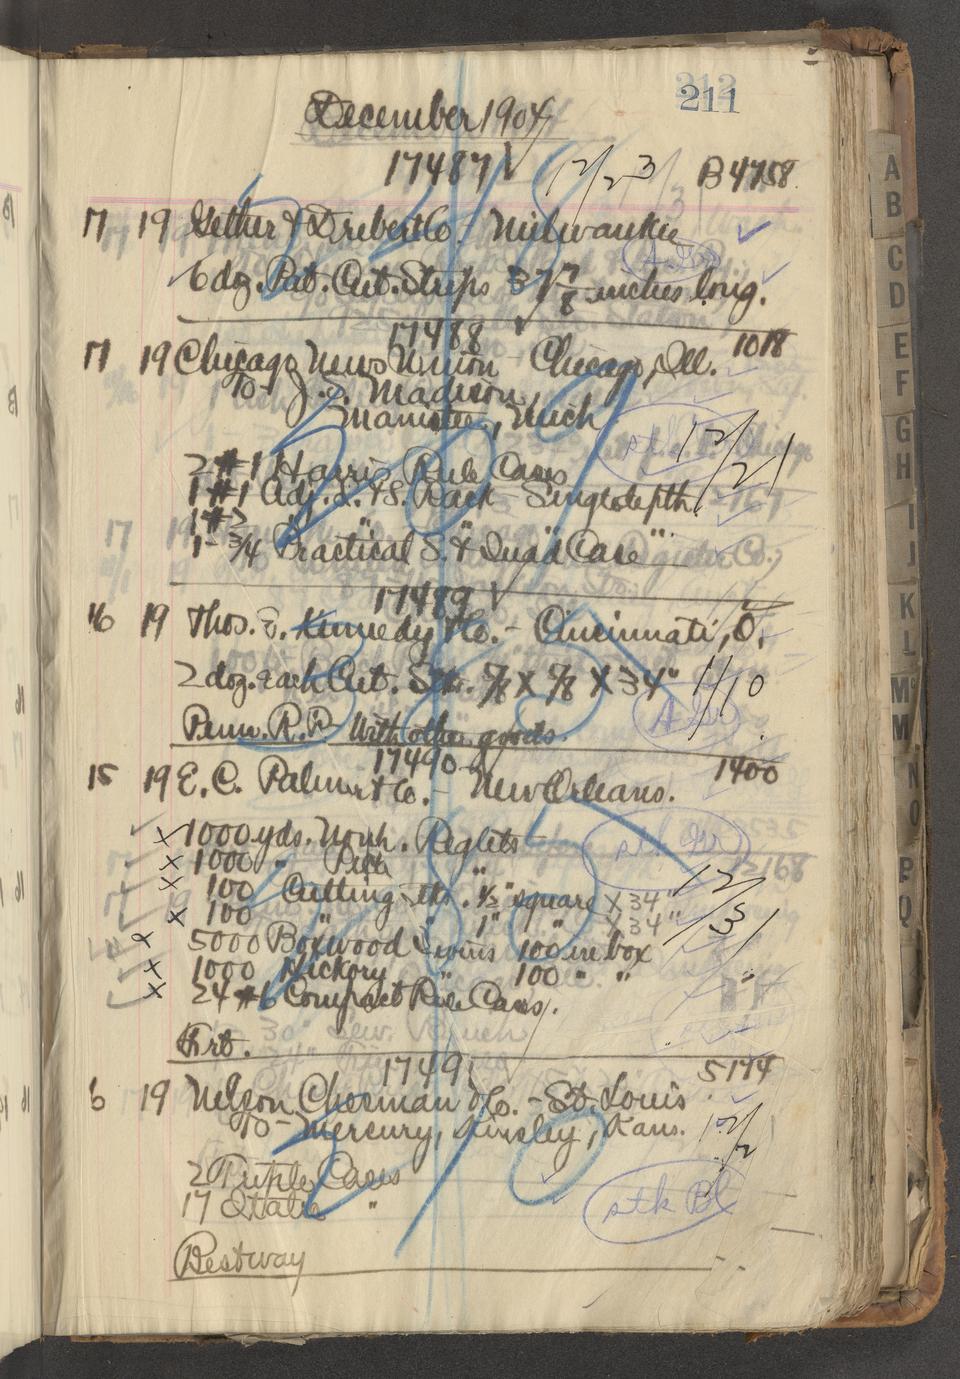 211
December 1904
17487 12/23 B4758
17 19 Gether & Drebert Co. - Milwaukee
6 doz. Pat. Cut. Strips 37 7/8 inches long.
17488 1018
17 19 Chicago News Union - Chicago, Ill.
To- J. S. Madison,
Manistee, Mich
12/21
2 #1 Harris Rule Cases
1 #1 Adj. L. & S. Rack - Single depth.
1 #2 " " " "
1- 3/4 Practical S. & Quad Case
17489
16 19 Thos. E. Kennedy & Co. - Cincinnati, O.
2 doz. each Cut. Stk. 7/8 X 7/8 X 34" 1/10
Penn. R.R. With other goods.
17490 1400
15 19 E. C. Palmer & Co. - New Orleans.
1000 yds. Nonh. Reglets
1000 " Pica "
100 Cutting Stks. 1/2" square X 34"
100 " " 1" " X 34"
12/31
5000 Boxwood Quoins 100 in box
1000 Hickory " 100 " "
24 #6 Compact Rule Cases.
Frt.
17491 5174
6 19 Nelson, Chesman & Co. - St. Louis
To- Mercury, Kinsley, Kans. 12/2
2 Triple Cases
17 Italic "
stk Bl
Bestway